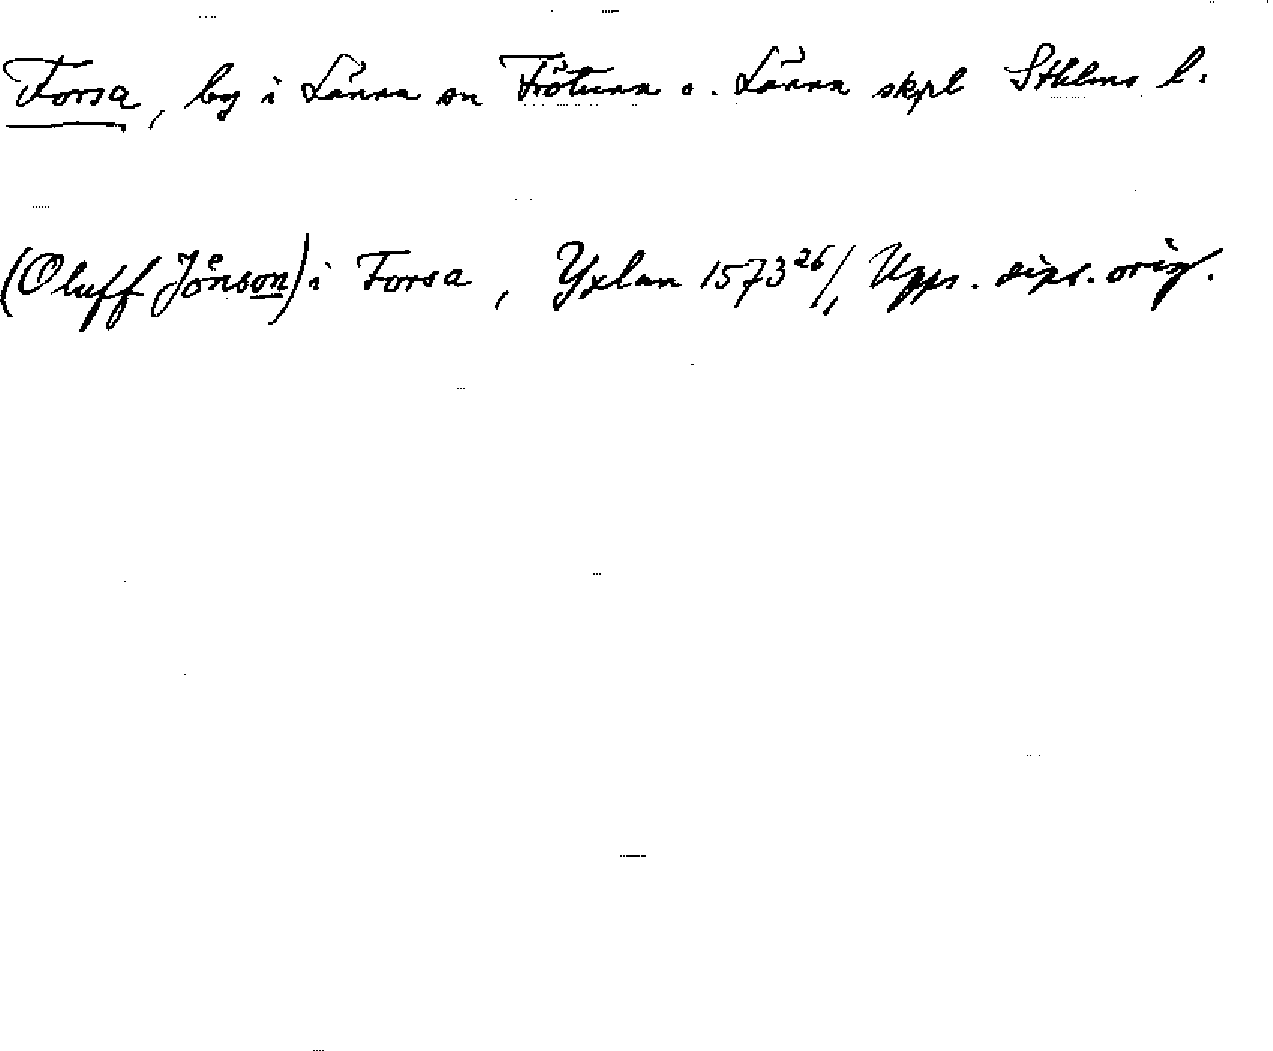 Forsa, by i Länna sn Frötuna o. Länna skpl Sthlms l.
(Oluff Jönson) i Forsa, Yxlan 1573 26/1, Upps. dipl. orig.